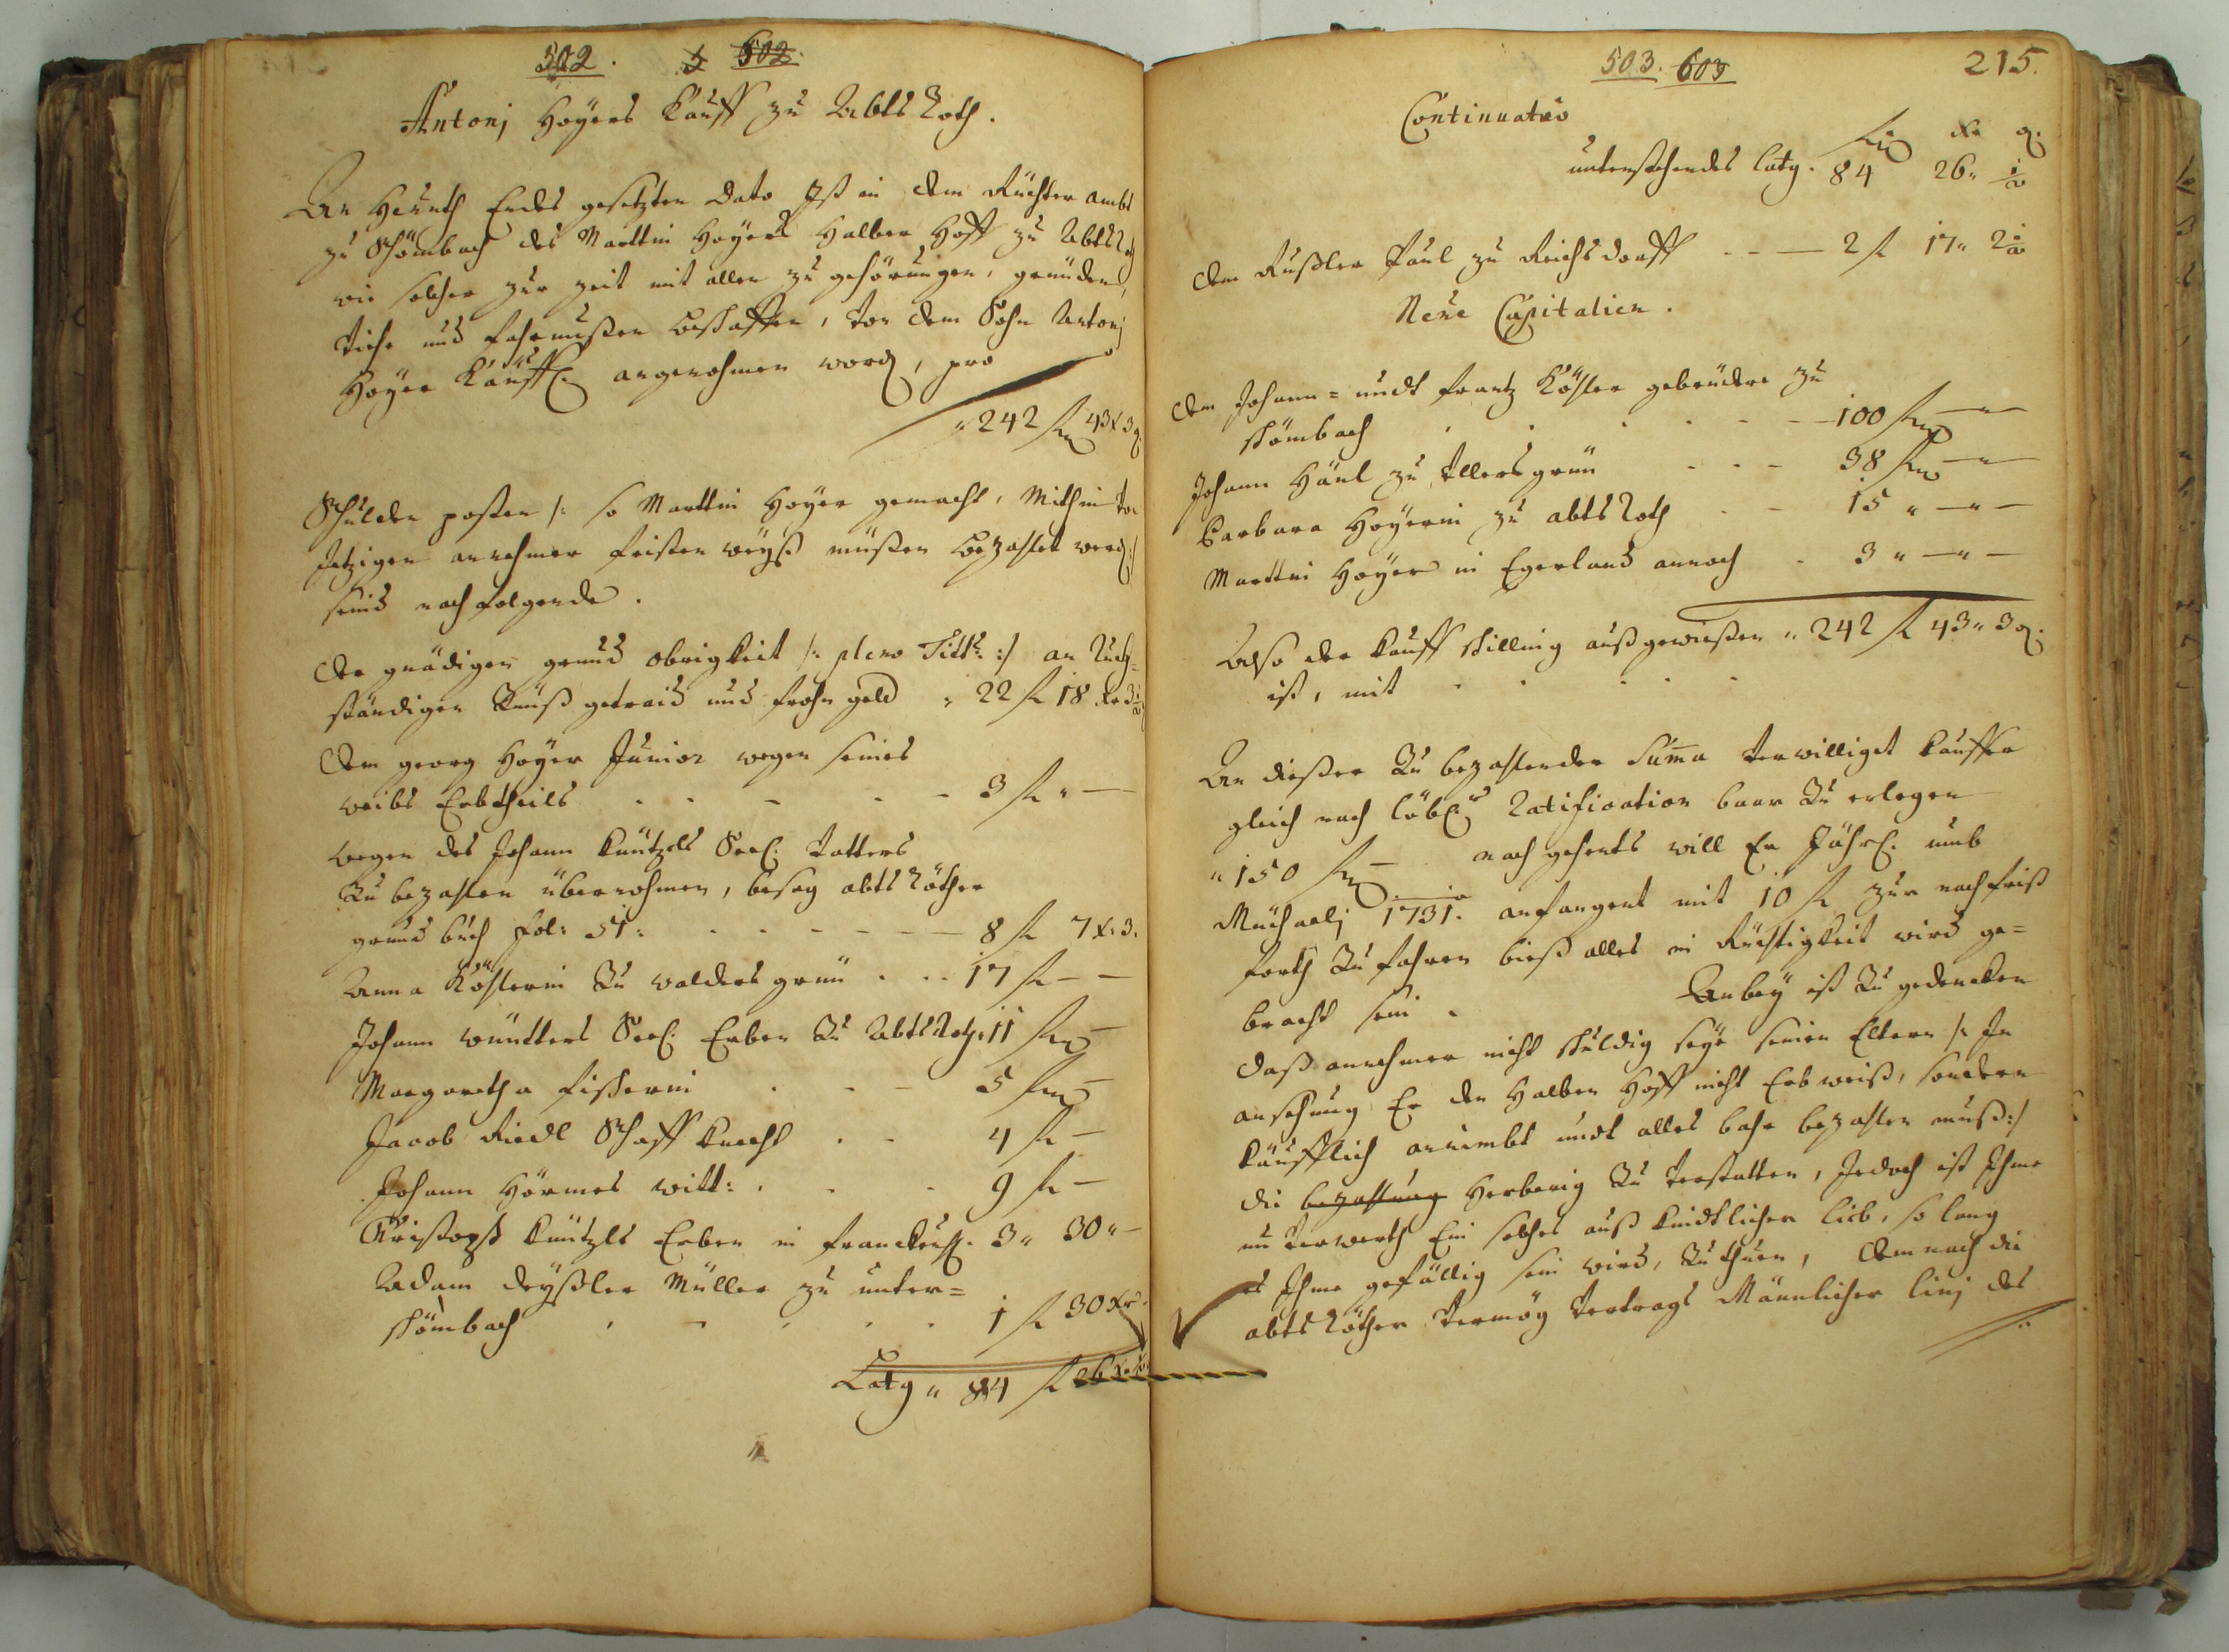 502. 5 602.
Antonj Hoÿers Kauff zu Abts Roth.
An Heunth Endes gesetzten dato Ist in dem Rüchter ambt
zu Schömbach des Marttin Hoÿers Halber Hoff zu Abts
wie solcher zur zeit mit allen zu gehörungen, gründen,
Viche und fahrnußen beschaffen, von dem Sohn Antonj
Hoÿer Käuffl. angenohmen word, pro
" 242 fl 43 x 3
Schulden posten /: so Marttin Hoÿer gemacht, Mithin von
Jetzigen annehmer fristen weÿß müßen bezahlet werd :/
seind nachfolgende.
Der gnädigen grund obrigkeit /: pleno Titt: :/ an Ruck=
ständigen Zünß getraid und frohn geld " 22 fl 18 kr 3
Dem georg Hoÿer Junior wegen seines
weibs Erbtheils - - - 3 fl " —
wegen des Johann Küntzels Seel. Vatters
Zu bezahlen übernohmen, besag abts Röther
grund buch fol: 51: - - - 8 fl 7 x: 3.
Anna Köhlerin Zu walders grün . . . 17 fl — —
Johann wüntters Seel. Erben Zu Abts Roth. 11 fl —
Margaretha fischerin - - - 5 fl —
Jacob Riedl Schaff Knecht . - 4 fl —
Johann Hörmes witt: . - - 9 fl —
Christoph Küntzls Erben in franckenh. 3 " 30 " —
Adam deÿßler Müller zu unter=
schömbach - - - 1 fl 30 xr
Latg " 84 fl 26 x
503. 603 215.
Continuatio
fl kr
untenstehendes latg. 84 26 " 1/2
Dem Rußler Paul zu Reichsdorff - - — 2 fl 17 " 2 1/2
Neue Capitalien.
Dem Johann = undt frantz Köhler gebrüdere zu
schömbach . . . - - — 100 fl — " —
Johann Häul zu Ullersgrün - - - 38 fl — " —
Barbara Hoÿerin zu abts Roth - - 15 " — " —
Marttin Hoÿer in Egerland annoch - 3 " — " —
Also der kauff schilling außgewießen " 242 fl 43 " 3
ist, mit - - - -
An dießer Zu bezahlender Suma verwilliget kauffer
gleich nach löbl. Ratification baar Zu erlegen
" 150 fl — nach gehents will Er Jährl. umb
Müchaelj 1731. anfangent mit 10 fl zur nachfrist
forth Zu fahren bieß alles in Rüchtigkeit wird ge=
bracht sein. Anbeÿ ist Zu gedencken
daß annehmer nicht schuldig seÿe seinen Eltern /: In
ansehung Er den Halben Hoff nicht Erb weiß, sondern
käufflich annimbt undt alles bahr bezahlen muß :/
die bezahlung Herberig Zu verstatten, Jedoch ist Ihme
un verwerth Ein solches auß kindtlicher lieb, so lang
es Ihme gefällig sein wird, Zu thuen, Demnach die
abts Röther vermög vertrags Männlicher linj des